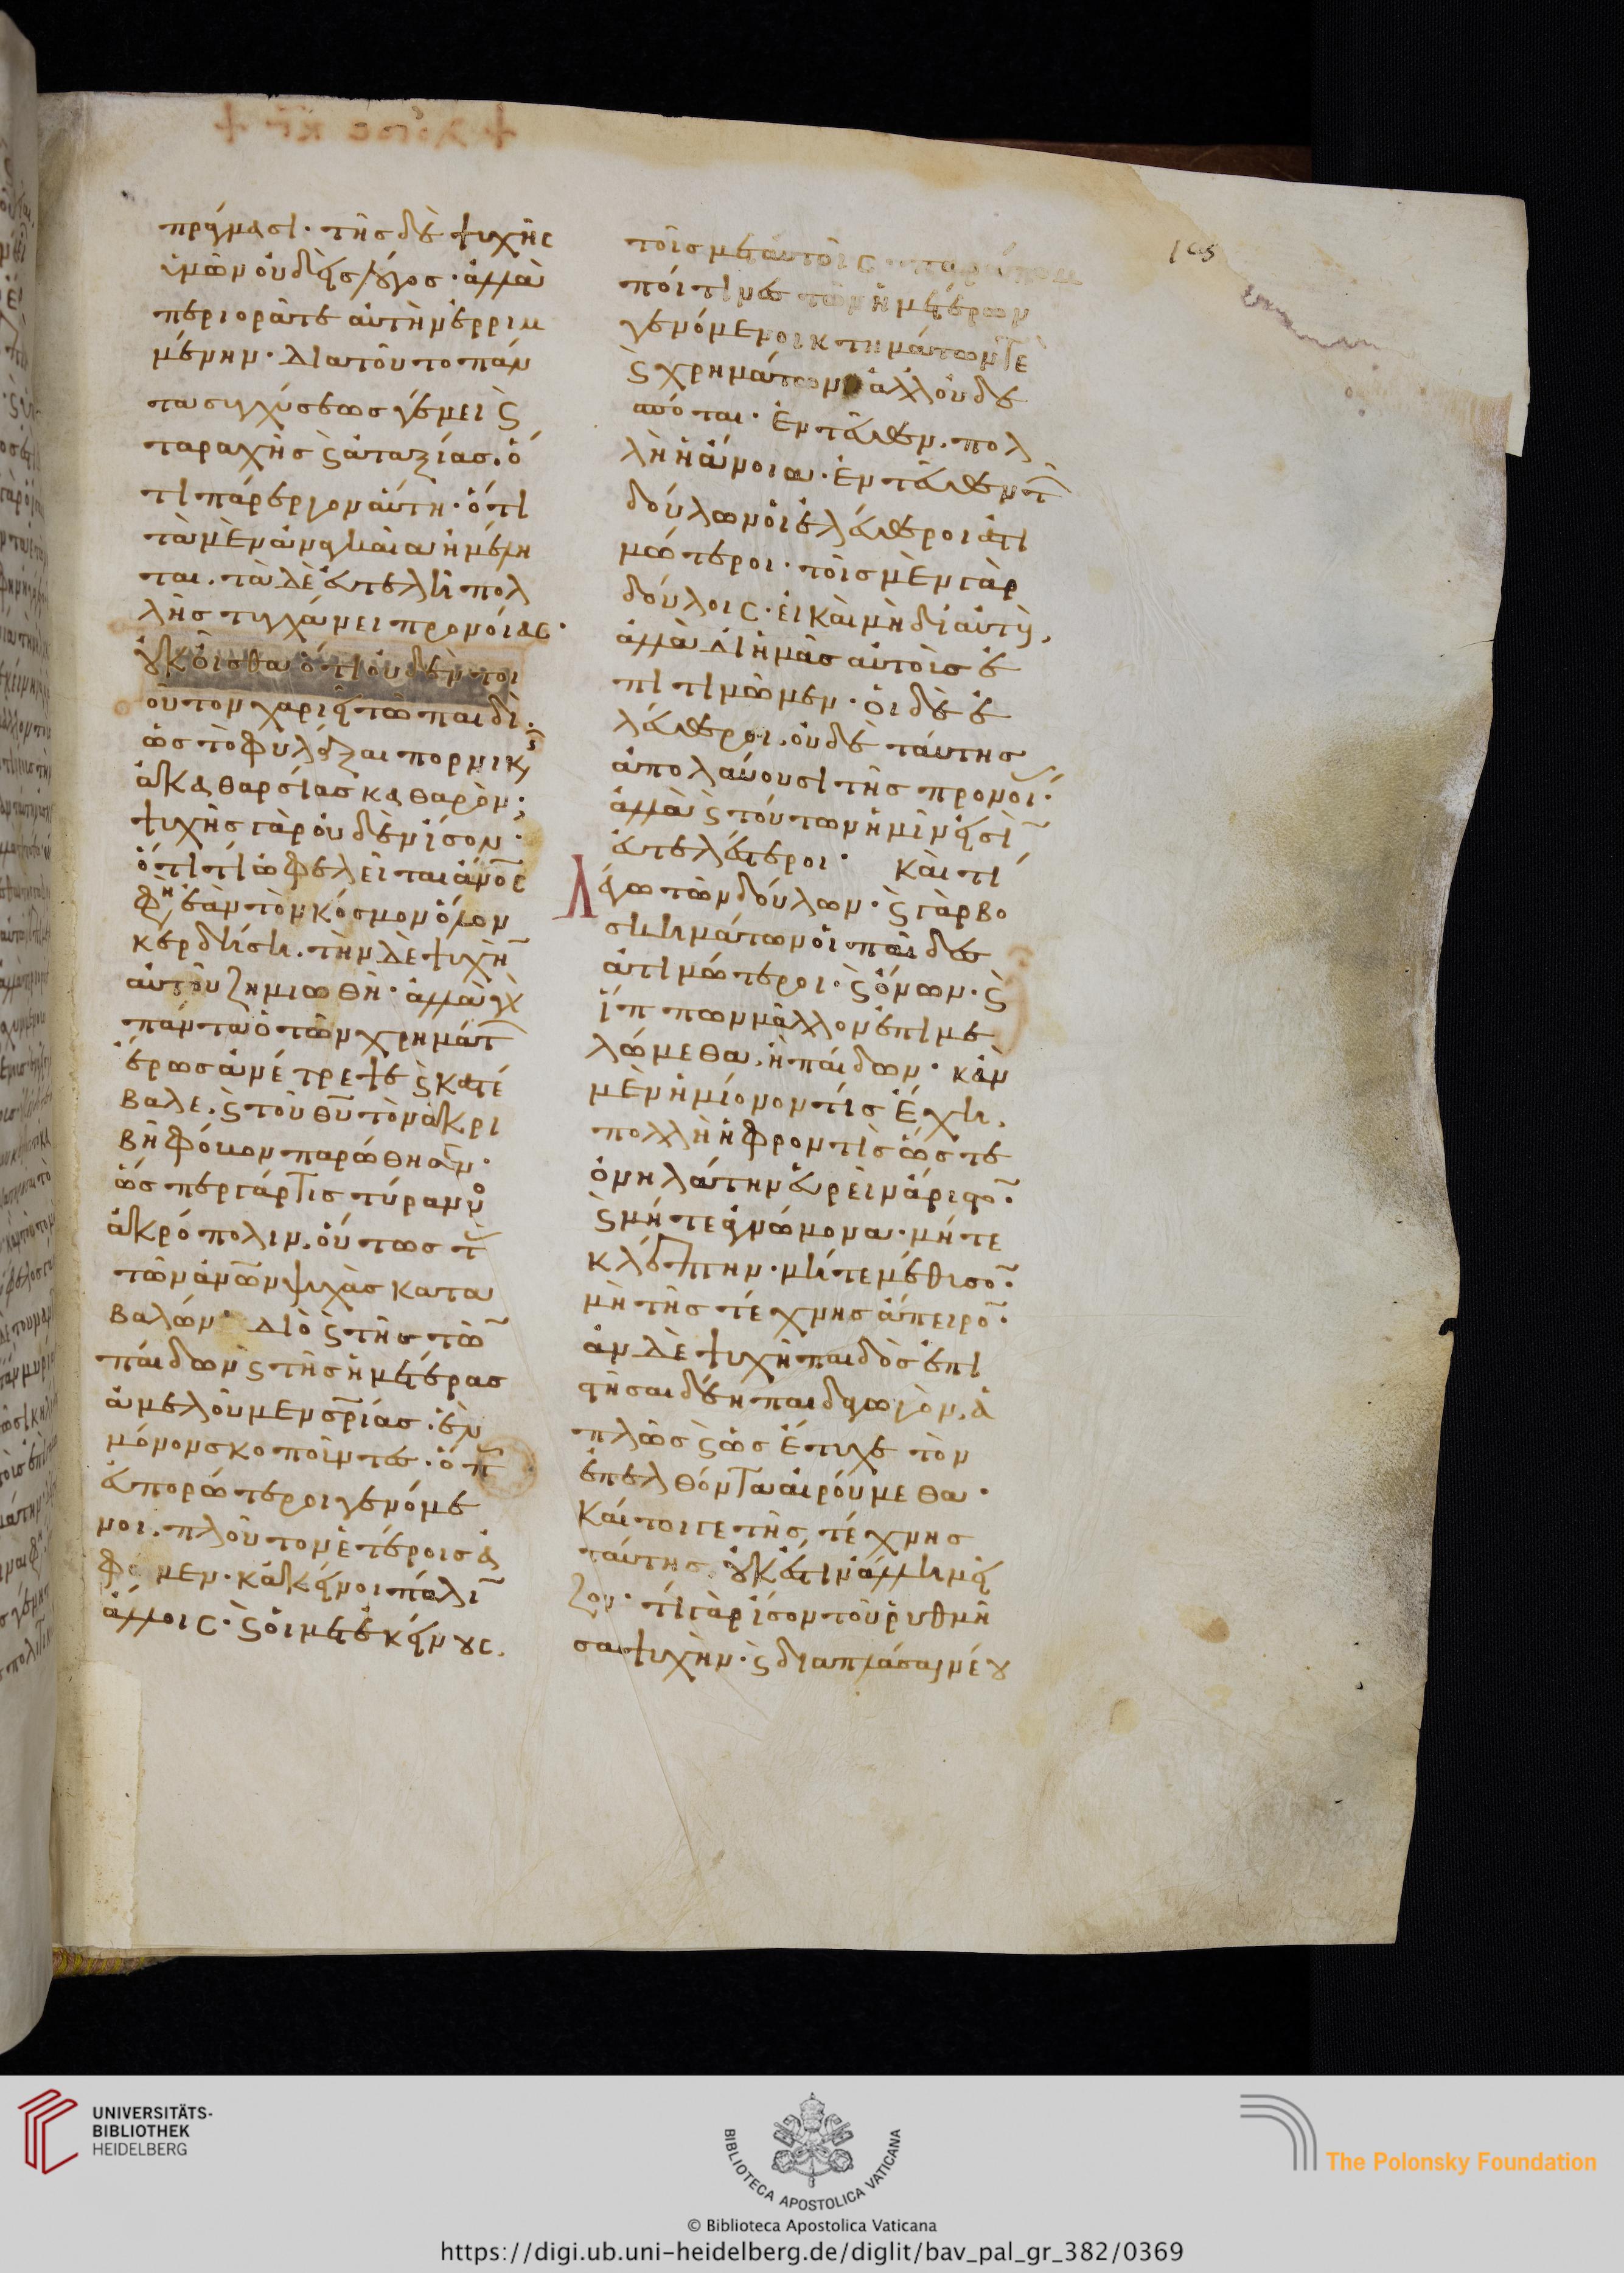 πράγμασι· τῆς δὲ ψυχῆς
ὑμῶν οὐδεὶς λόγος· ἀλλὰ
περιορᾶτε αὐτὴν ἐρριμ
μένην· διατοῦτο πάν
τα συγχύσεως γέμει ϗ
ταραχῆς ϗ ἀταξίας. ὅ
τι πάρεργον αὕτη· ὅτι
τὰ μὲν ἀναγκαῖα ἠμέλη
ται. τὰ δὲ εὐτελῆ πολ
λῆς τυγχάνει προνοίας·
οὐκ οἶσθα ὅτι οὐδὲν τοι
οῦτον χαριῆ τῶ παιδὶ.
ὡς τὸ φυλάξαι πορνικῆς
ἀκαθαρσίας καθαρὸν·
ψυχῆς γὰρ οὐδὲν ἴσον·
ὅτι τί ὠφελεῖται ἄνος
φη ἐὰν τὸν κόσμον ὅλον
κερδήση. τὴν δὲ ψυχὴν
αὐτοῦ ζημιωθῆ· ἀλλὰ γὰρ
πάντα ὁ τῶν χρημάτων
ἔρως ἀνέτρεψε ϗ κατέ
βαλε. ϗ τοῦ θυ τὸν ἀκρι
βῆ φόβον παρώθησεν·
ὥσπερ γάρ τις τύραννος
ἀκρόπολιν. οὕτως τὰς
τῶν ἀνων ψυχὰς κατα
βαλών· διὸ ϗ τῆς τῶν
παίδων ϗ τῆς ἡμετέρας
ἀμελοῦμεν σριας. ἓν
μόνον σκοποῦντες. ὅπως
εὐπορώτεροι γενόμε
νοι. πλοῦτον ἑτέροις ἀ
φῶμεν. κἀκεῖνοι πάλιν
ἄλλοις. ϗ οἱ μετ ἐκείνους.
τοῖς μετ αὐτοῖς. παραπομ
ποί τινες τῶν ἡμετέρων
γενόμενοι κτημάτων τε
ϗ χρημάτων ἀλλ οὐ δε
σπόται. ἐντεῦθεν. πολ
λὴ ἡ ἄνοια. ἐντεῦθεν τῶν
δούλων οἱ ἐλεύθεροι ἀτι
μώτεροι. τοῖς μὲν γὰρ
δούλοις. εἰ καὶ μὴ δι αὐτοὺς,
ἀλλὰ δι ἡμᾶς αὐτοῖς ἐ
πιτιμῶμεν. οἱ δὲ ἐ
λεύθεροι. οὐδὲ ταύτης
ἀπολαύουσι τῆς προνοίας.
ἀλλὰ ϗ τούτων ἡμῖν εἰσὶν
εὐτελέστεροι· καὶ τί
λέγω τῶν δούλων· ϗ γὰρ βο
σκημάτων οἱ παῖδες
ἀτιμότεροι. ϗ ὄνων. ϗ
ἵππων μᾶλλον ἐπιμε
λώμεθα. ἢ παίδων· κἂν
μὲν ἡμίονόν τις ἔχη.
πολλὴ ἡ φροντὶς ὥστε
ὀνηλάτην εὑρεῖν ἄριστον.
ϗ μήτε ἀγνώμονα. μήτε
κλέπτην. μήτε μέθυσον.
μὴ τῆς τέχνης ἄπειρον.
ἂν δὲ ψυχῆ παιδὸς ἐπι
στῆσαι δέη παιδαγωγὸν, ἁ
πλῶς ϗ ὡς ἔτυχε τὸν
ἐπελθόντα αἱρούμεθα·
καίτοι γε τῆς τέχνης
ταύτης οὐκ ἔστιν ἄλλη μεί
ζον· τί γὰρ ἴσον τοῦ ῥυθμῆ
σαι ψυχὴν. ϗ διαπλάσαι νέου
UNIVERSITÄTS-
BIBLIOTHEK
HEIDELBERG
BIBLIOTECA APOSTOLICA VATICANA
The Polonsky Foundation
© Biblioteca Apostolica Vaticana
https://digi.ub.uni-heidelberg.de/diglit/bav_pal_gr_382/0369